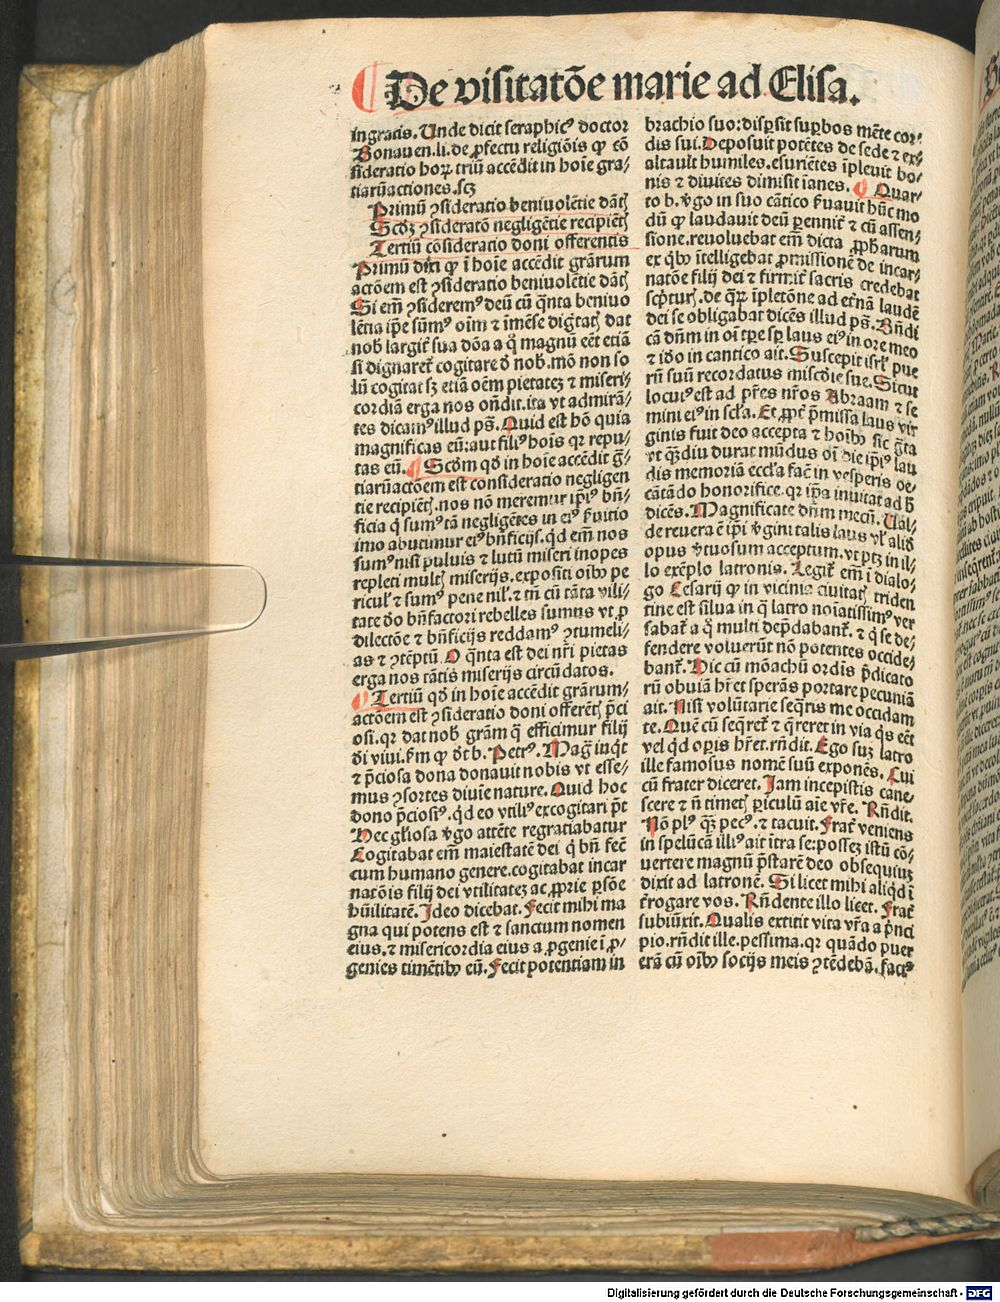 De visitatōe marie ad Elisa.
ingratis. Unde dicit seraphicꝰ doctor
Bonauen. li. de ꝓfectu religiōis ꝙ cō
sideratio hoꝝ triū accēdit in hoīe gra⸗
tiarūactiones. scꝫ
Primū ↄsideratio beniuolētie dātꝭ
Scdꝫ ↄsideratō negligētie recipiētꝭ
Tertiū cōsideratio doni offerentis
Primū dixi ꝙ ī hoīe accēdit grārum
actōem est ↄsideratio beniuolētie dātꝭ
Si em̄ ↄsideremꝰ deū cū q̄nta beniuo
lētia ip̄e sūmꝰ oīm ⁊ īmēse digtatꝭ dat
nob̄ largit̄ sua dōa a q̊ magnū eēt etiā
si dignaret̄ cogitare d̄ nob̄. mō non so
lū cogitat sꝫ etiā oēm pietatez ⁊ miseri⸗
cordiā erga nos on̄dit. ita vt admirā⸗
tes dicamꝰ illud ps̄. Quid est hō quia
magnificas eū: aut filiꝰ hoīs qꝛ repu⸗
tas eū. Scdm qd̄ in hoīe accēdit gr̄a⸗
tiarūactōem est consideratio negligen
tie recipiētꝭ. nos nō meremur ip̄iꝰ bn̄⸗
ficia q̄ sumꝰ tā negligētes in eiꝰ ẜuitio
imo abutimur eiꝰ bn̄ficijs. qd̄ em̄ nos
sumꝰ nisi puluis ⁊ lutū miseri inopes
repleti multꝭ miserijs. expositi oībꝰ pe
riculꝭ ⁊ sumꝰ pene nil̄. ⁊ tn̄ cū tāta vili⸗
tate d̄o bn̄factori rebelles sumus vt ꝓ
dilectōe ⁊ bn̄ficijs reddamꝰ ↄtumeli⸗
as ⁊ ↄtēptū. O q̄nta est dei nr̄i pietas
erga nos tātis miserijs circūdatos.
Tertiū qd̄ in hoīe accēdit grārum⸗
actōem est ↄsideratio doni offerētꝭ p̄ci
osi. qꝛ dat nob̄ grām q̄ efficimur filij
d̄i viui. ẜm ꝙ d̄t b. Petrꝰ. Maḡ inq̄t
⁊ p̄ciosa dona donauit nobis vt esse⸗
mus ↄsortes diuīe nature. Quid hoc
dono p̄ciosiꝰ. qd̄ eo vtiliꝰ excogitari pt̄
Hec gl̄iosa v̓go attēte regratiabatur
Cogitabat em̄ maiestatē dei q̄ bn̄ fec̄
cum humano genere. cogitabat incar
natōis filij dei vtilitatez ac ꝓprie ꝑsōe
hūilitatē. Ideo dicebat. Fecit mihi ma
gna qui potens est ⁊ sanctum nomen
eius. ⁊ misericordia eius a ꝓgenie ī ꝓ⸗
genies timētibꝰ eū. Fecit potentiam in
brachio suo: disꝑsit suꝑbos mēte cor⸗
dis sui. Deposuit potētes de sede ⁊ ex⸗
altauit humiles. esuriētes īpleuit bo⸗
nis ⁊ diuites dimisit īanes. Quar⸗
to b. v̓go in suo cātico ẜuauit hūc mo
dū ꝙ laudauit deū ꝑennit̄ ⁊ cū assen⸗
sione. reuoluebat em̄ dicta ꝓph̄arum
ex qbꝰ ītelligebat ꝓmissionē de incar⸗
natōe filij dei ⁊ firmit̄ sacris credebat
scpturꝭ. de qꝝ īpletōne ad etnā laudē
dei se obligabat dicēs illud ps̄. Bn̄di
cā dn̄m in oī tꝑe sꝑ laus eiꝰ in ore meo
⁊ iō in cantico ait. Suscepit isrl̄ pue
rū suū recordatus miscd̄ie sue. Sicut
locutꝰ est ad pr̄es nr̄os Abraam ⁊ se
mini eiꝰ in scl̄a. Et ꝓpt̄ p̄missa laus vir
ginis fuit deo accepta ⁊ hoībꝰ sic gr̄ta
vt qꝫdiu durat mūdus oī die ip̄iꝰ lau
dis memoriā eccl̄a facit in vesperis de
cātādo honorifice. qꝛ ip̄a inuitat ad h̄
dicēs. Magnificate dn̄m mecū. Ual⸗
de reuera ē ip̄i v̓gini talis laus vl̓ aliḋ
opus v̓tuosum acceptum. vt ptꝫ in il⸗
lo exēplo latronis. Legit̄ em̄ ī dialo⸗
go Cesarij ꝙ in vicinia ciuitatꝭ triden
tine est silua in q̄ latro noīatissimꝰ ver
sabat̄ a q̊ multi dep̄dabant̄. ⁊ q̇ se de⸗
fendere voluerūt nō potentes occide⸗
bant̄. Hic cū mōachū ordīs p̄dicato
rū obuiā hr̄et sperās portare pecuniā
ait. Nisi volūtarie seq̄ris me occidam
te. Quē cū seq̄ret̄ ⁊ q̄reret in via qs eēt
vel qd̄ oꝑis hr̄et. rn̄dit. Ego sum latro
ille famosus nomē suū exponēs. Cui
cū frater diceret. Iam incepistis cane⸗
scere ⁊ nō timetꝭ ꝑiculū aīe vr̄e. Rn̄dit.
Nō plꝰ qꝫ pecꝰ. ⁊ tacuit. Frat̄ veniens
in spelūcā illiꝰ ait ītra se: possez istū cō⸗
uertere magnū p̄starē deo obsequiuz
dixit ad latronē. Si licet mihi aliqd̄ ī
t̄rogare vos. Rn̄dente illo licet. Frat̄
subiūxit. Qualis extitit vita vr̄a a p̄nci
pio. rn̄dit ille. pessima. qꝛ quādo puer
erā cū oībꝰ socijs meis ↄtēdebā. factꝰ
Digitalisierung gefördert durch die Deutsche Forschungsgemeinschaft - DFG